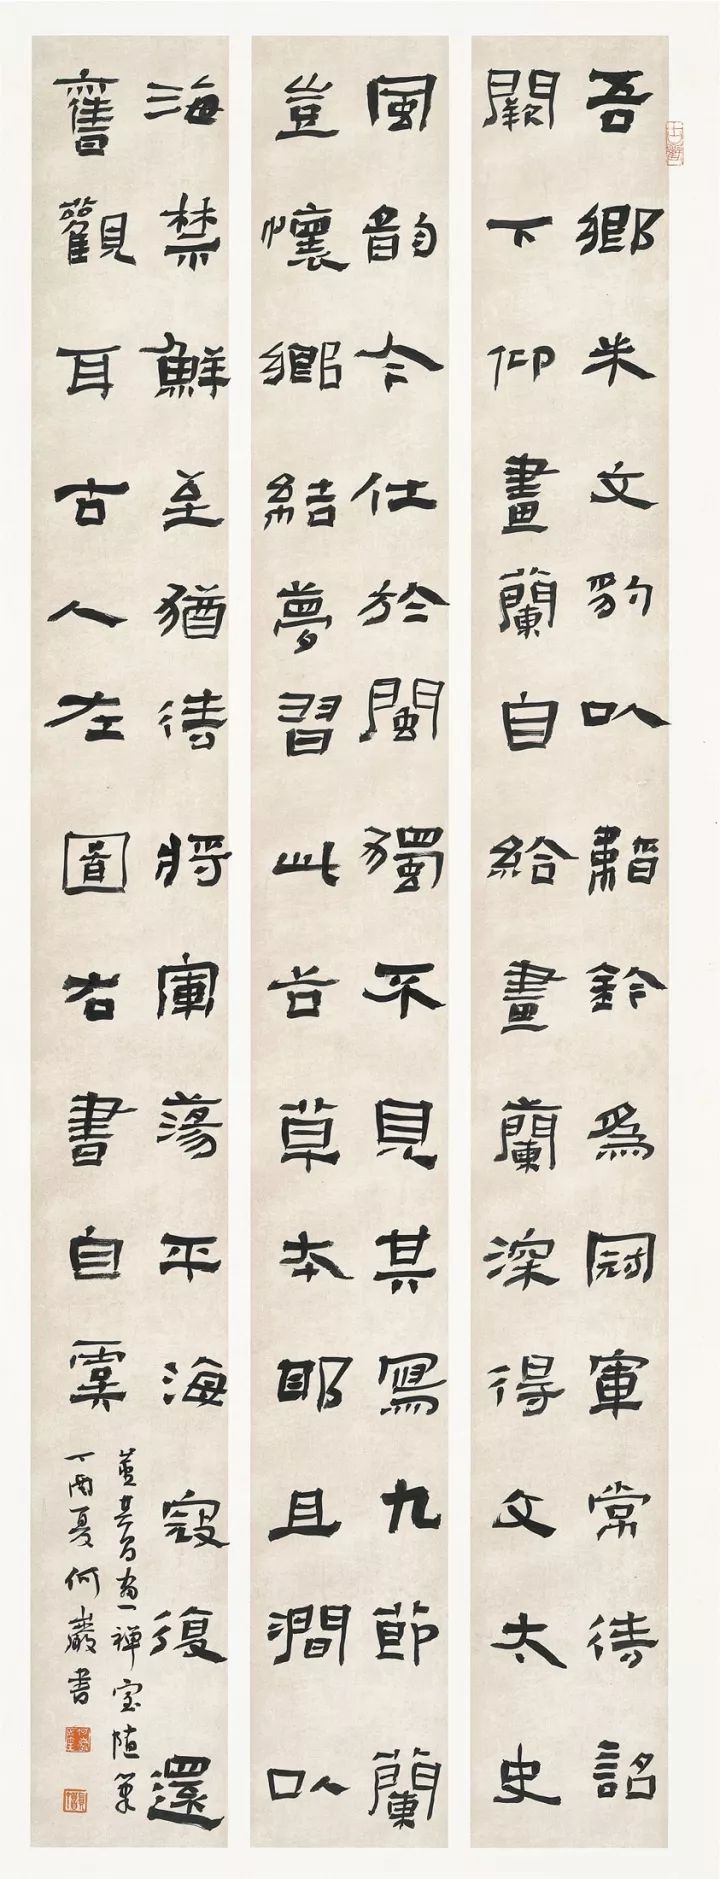 吾鄉朱文豹以韜鈐爲冠軍常待詔
闕下仰畫蘭自給畫蘭深得文太史
風韵今仕於閩獨不見其寫九節蘭
豈懷鄉結夢習此谷草本耶且澗以
海禁鮮至猶待將軍蕩平海寇復還
舊觀耳古人左圖右書自虞
董其昌畫禪室随筆
丁酉夏何巖書